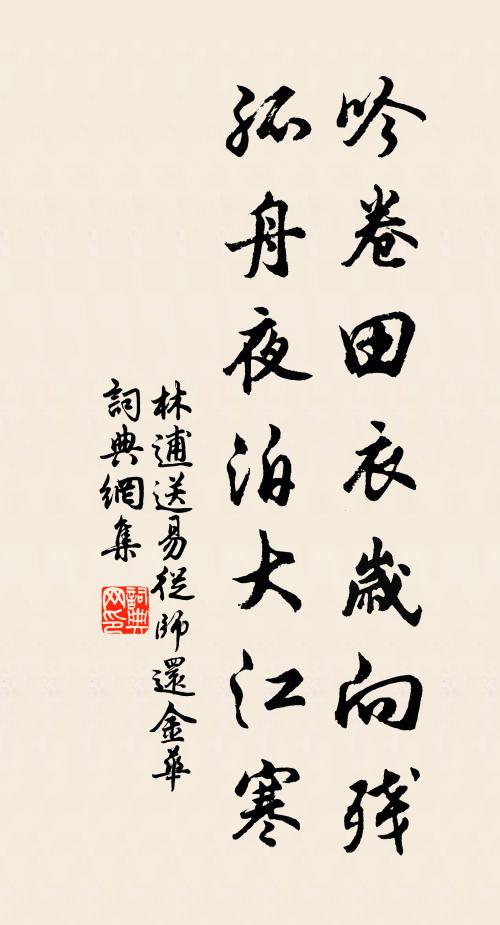 吟卷田衣歲向残
孤舟夜泊大江寒
林逋送易從師還金華
詞典網集
詞典
网印